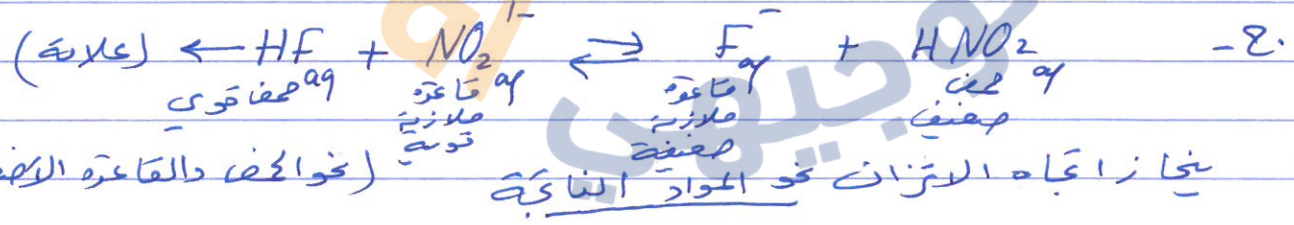 ج- HF(aq) + NO₂⁻(aq) ⇌ F⁻(aq) + HNO₂(aq) ← (علامة)
حمض قوي قاعدة ملازمة قوية قاعدة ملازمة ضعيفة حمض ضعيف
ينحاز اتجاه الاتزان نحو المواد الناتجة (نحو الحمض والقاعدة